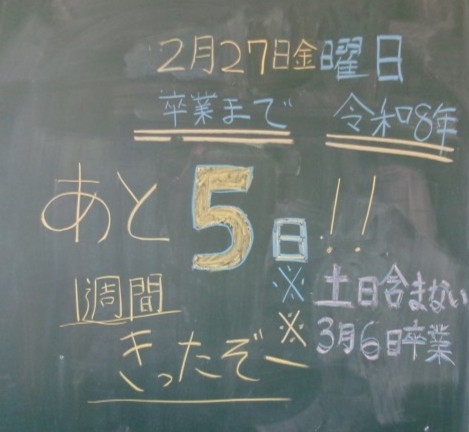 2月27日金曜日
卒業まで 令和8年
あと5日!!
1週間
きったぞー
※土日含まない
※3月6日卒業